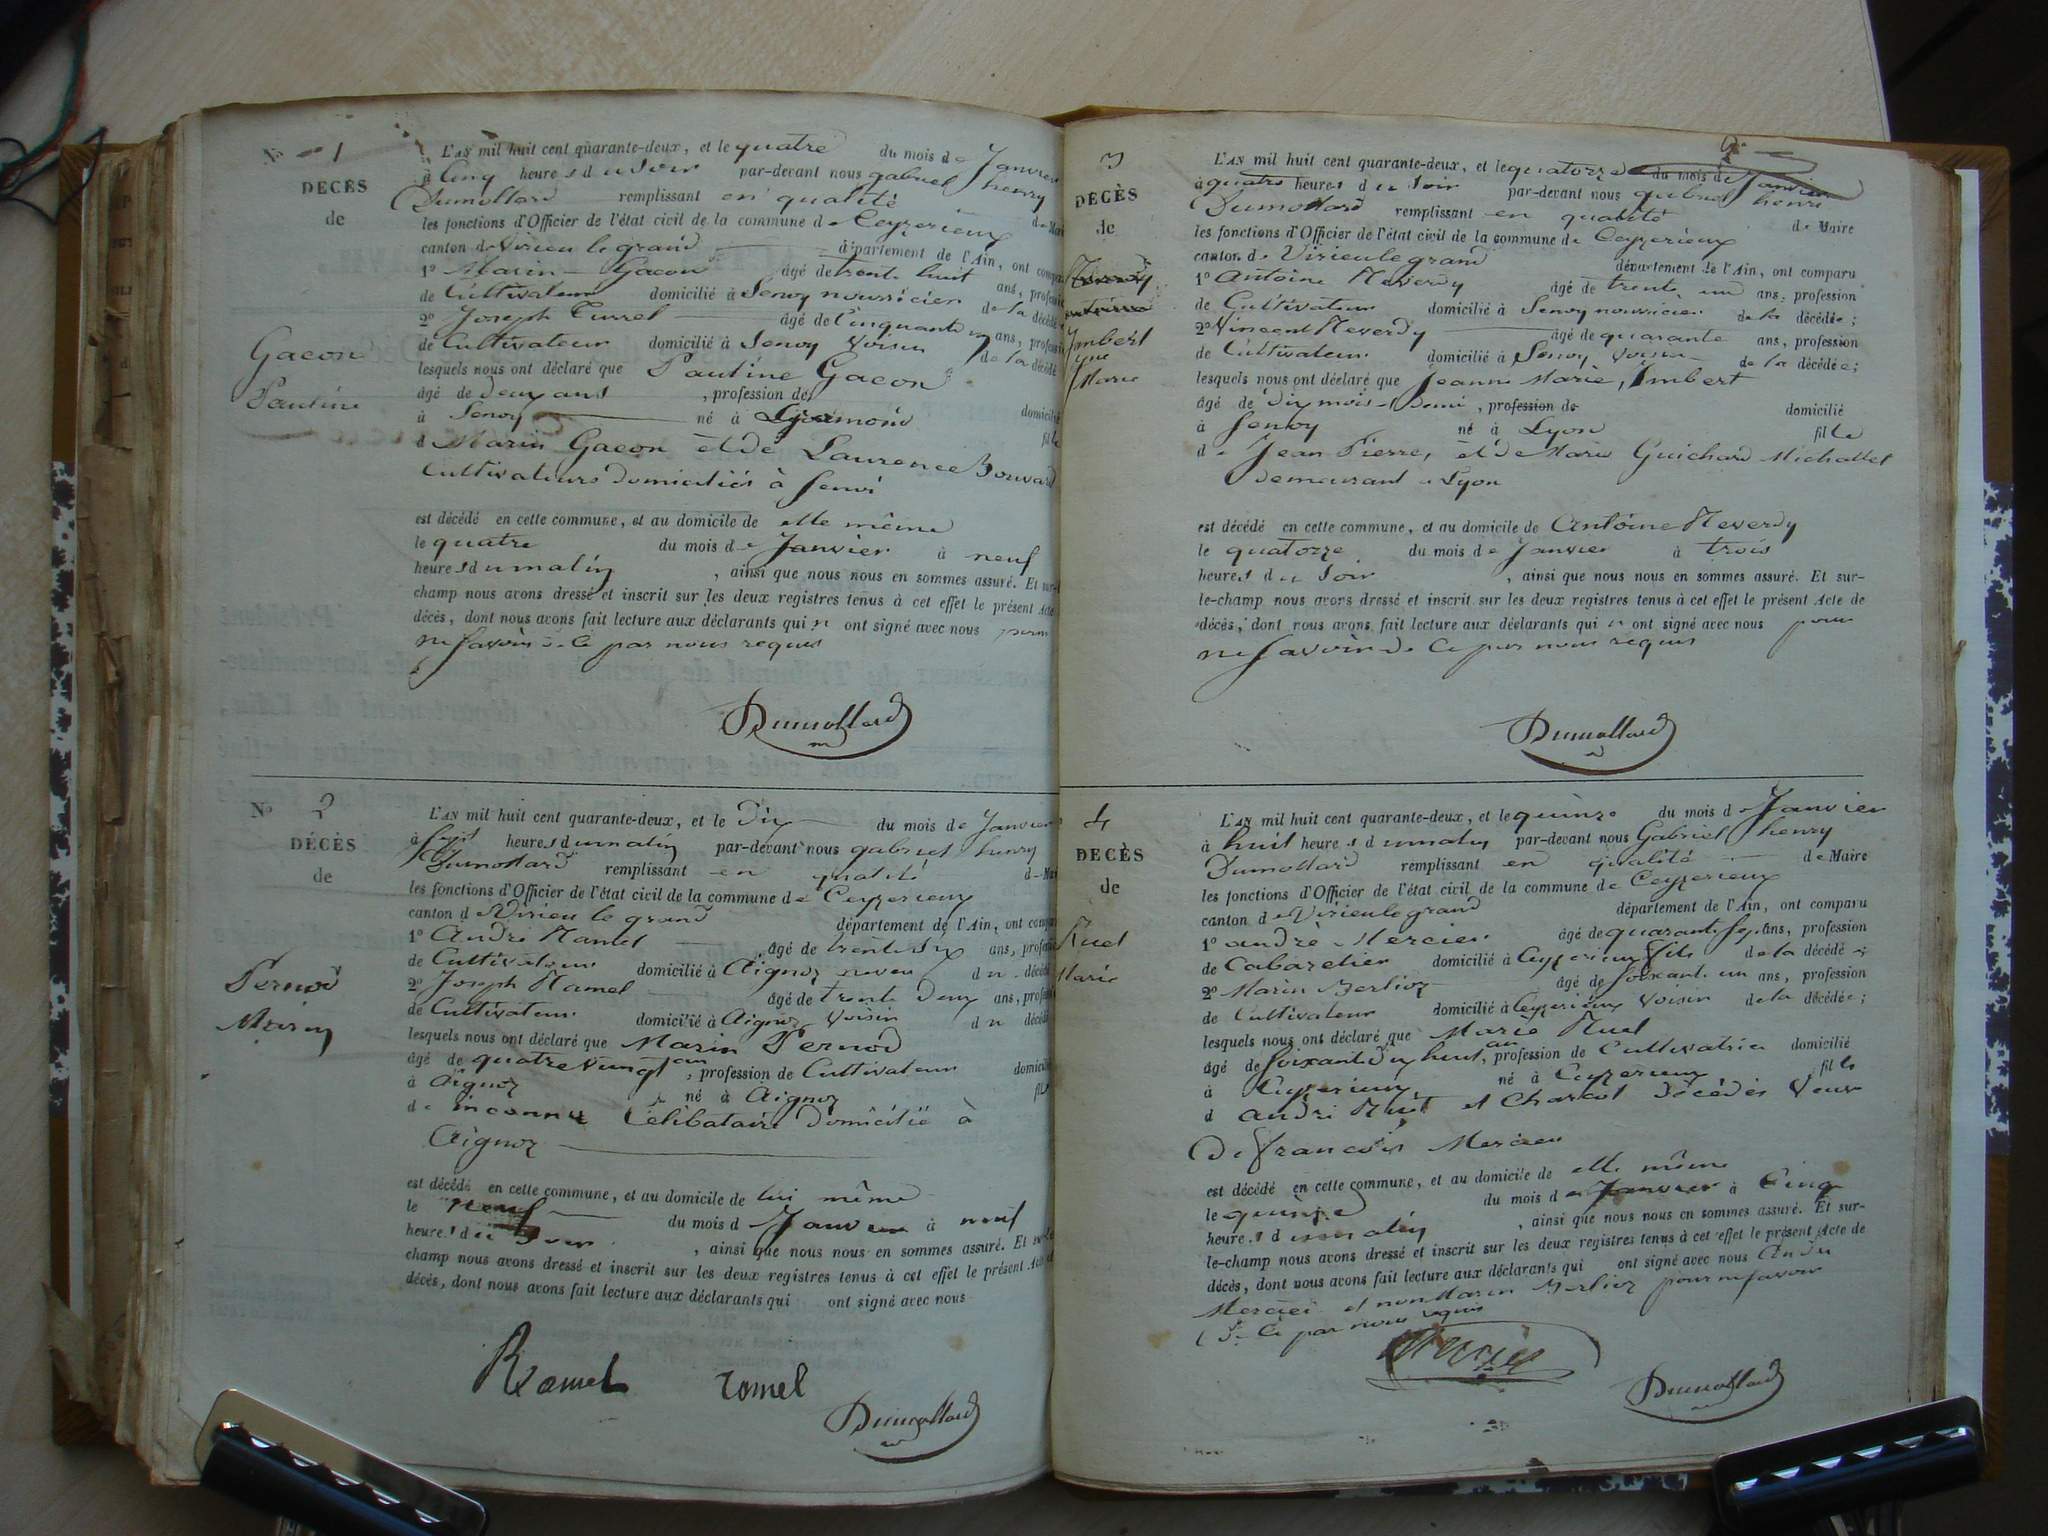 N° 1
DÉCÈS
de
Gacon
Pauline
L'AN mil huit cent quarante-deux, et le quatre du mois de Janvier
à Cinq heures du soir par-devant nous gabriel henry
Dumollard remplissant en qualité de Mai
les fonctions d'Officier de l'état civil de la commune de Ceyzerieux
canton de Virieu le grand département de l'Ain, ont compa
1° Marin Gacon âgé de trente huit ans, profession
de Cultivateur domicilié à Senoy nourricier de la décédé
2° Joseph Turrel âgé de Cinquante ans, profession
de Cultivateur domicilié à Senoy Voisin de la décédé
lesquels nous ont déclaré que Pauline Gacon
âgé de deux ans , profession de domicilié
à Senoy né à fille
d Marin Gacon et de Laurence Bouvard
Cultivateurs domiciliés à Senoi
est décédé en cette commune, et au domicile de elle même
le quatre du mois de Janvier à neuf
heures du matin , ainsi que nous nous en sommes assuré. Et sur-
champ nous avons dressé et inscrit sur les deux registres tenus à cet effet le présent Acte
décès, dont nous avons fait lecture aux déclarants qui n ont signé avec nous pour
ne savoir de ce par nous requis
Dumollard
N° 2
DÉCÈS
de
Pernod
Marin
L'AN mil huit cent quarante-deux, et le Dix du mois de Janvier
à huit heures du matin par-devant nous gabriel henry
Dumollard remplissant en qualité de Mai
les fonctions d'Officier de l'état civil de la commune de Ceyzerieux
canton de Virieu le grand département de l'Ain, ont compa
1° André Ramel âgé de trente six ans, profession
de Cultivateur domicilié à Aignoz neveu du décédé
2° Joseph Ramel âgé de trente deux ans, profession
de Cultivateur domicilié à Aignoz Voisin du décédé
lesquels nous ont déclaré que Marin Pernod
âgé de quatre vingt ans, profession de Cultivateur domicilié
à Aignoz né à Aignoz fils
de inconnu Célibataire domicilié à
Aignoz
est décédé en cette commune, et au domicile de lui même
le neuf du mois d Janvier à neuf
heures du soir , ainsi que nous nous en sommes assuré. Et sur-le
champ nous avons dressé et inscrit sur les deux registres tenus à cet effet le présent Acte
décès, dont nous avons fait lecture aux déclarants qui ont signé avec nous
Ramel ramel
Dumollard
2
3
DÉCÈS
de
Imbert
Marie
L'AN mil huit cent quarante-deux, et le quatorze du mois de Janvier
à quatre heures du soir par-devant nous gabriel henri
Dumollard remplissant en qualité de Maire
les fonctions d'Officier de l'état civil de la commune de Ceyzerieux
canton de Virieu le grand département de l'Ain, ont comparu
1° Antoine Reverdy âgé de trente un ans, profession
de Cultivateur domicilié à Senoy nourricier de la décédée;
2° Vincent Reverdy âgé de quarante ans, profession
de Cultivateur domicilié à Senoy Voisin de la décédée;
lesquels nous ont déclaré que Jeanne Marie, Imbert
âgé de dix mois et Demi , profession de domicilié
à Senoy né à Lyon fille
de Jean Pierre, et de Marie Guichard Michallet
Demeurant à Lyon
est décédé en cette commune, et au domicile de Antoine Reverdy
le quatorze du mois de Janvier à trois
heures du soir , ainsi que nous nous en sommes assuré. Et sur-
le-champ nous avons dressé et inscrit sur les deux registres tenus à cet effet le présent Acte de
décès, dont nous avons fait lecture aux déclarants qui n ont signé avec nous pour
ne savoir de ce par nous requis
Dumollard
4
DÉCÈS
de
Ruet
Marie
L'AN mil huit cent quarante-deux, et le quinze du mois d Janvier
à huit heures du matin par-devant nous Gabriel henry
Dumollard remplissant en qualité de Maire
les fonctions d'Officier de l'état civil de la commune de Ceyzerieux
canton de Virieu le grand département de l'Ain, ont comparu
1° andré Mercier âgé de quarante sept ans, profession
de Cabaretier domicilié à Ceyzerieux fils de la décédée
2° Marin Berlioz âgé de soixante un ans, profession
de Cultivateur domicilié à Ceyzerieux Voisin de la décédée;
lesquels nous ont déclaré que Marie Ruet
âgé de soixante dix huit ans, profession de Cultivatrice domicilié
à Ceyzerieux né à Ceyzerieux fille
d andré Ruet et Charcot décédés Veuve
De francois Mercier
est décédé en cette commune, et au domicile de elle même
le quinze du mois de Janvier à Cinq
heures du matin , ainsi que nous nous en sommes assuré. Et sur-
le-champ nous avons dressé et inscrit sur les deux registres tenus à cet effet le présent Acte de
décès, dont nous avons fait lecture aux déclarants qui ont signé avec nous André
Mercier et non Marin Berlioz pour ne savoir
de ce par nous requis
Mercier
Dumollard